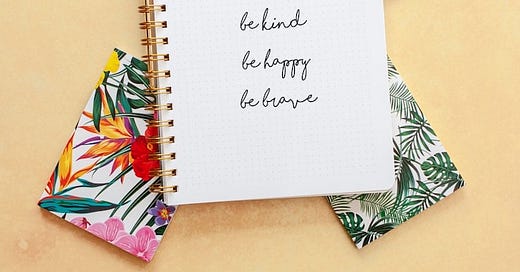 be kind
be happy
be brave